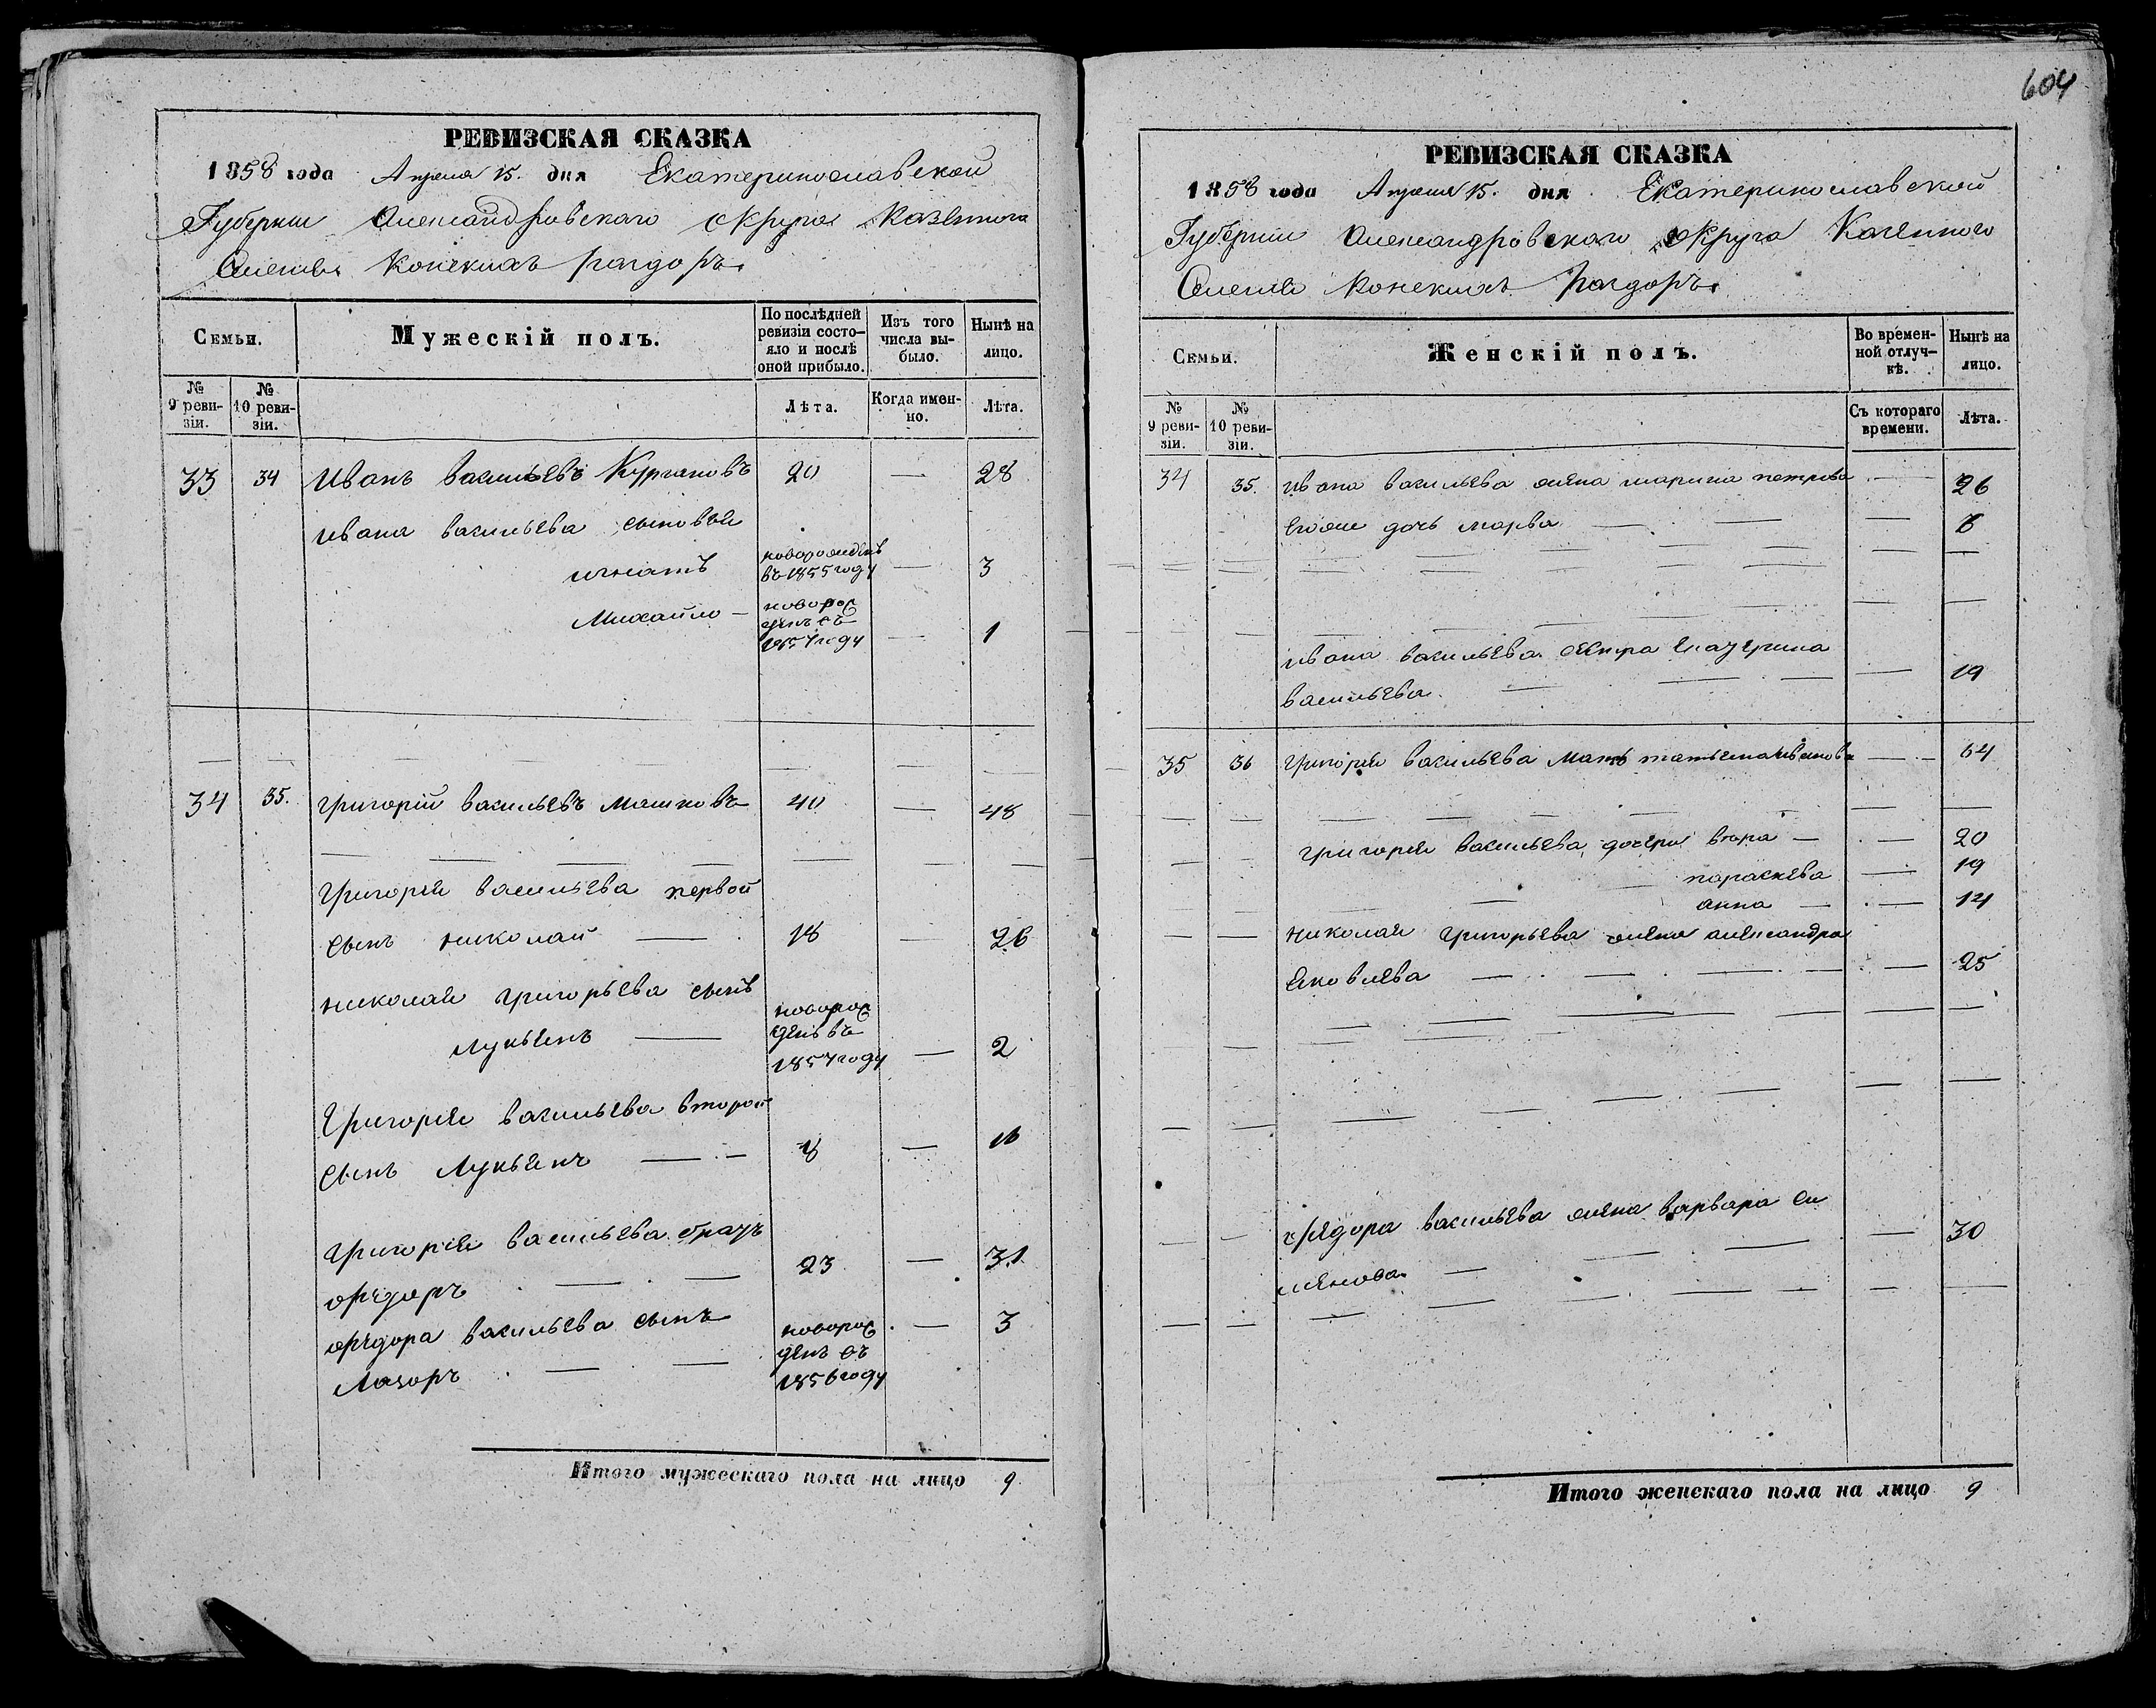 604
РЕВИЗСКАЯ СКАЗКА
1858 года Апреля 15. дня Екатеринославской
Губернии Александровскаго округа Казеннога
Селенія Конскихъ раздоръ
Семьи.
Мужескій полъ.
По послѣдней ревизіи состояло и послѣ оной прибыло.
Изъ того числа выбыло.
Нынѣ на лицо.
№ 9 ревизіи.
№ 10 ревизіи.
Лѣта.
Когда именно.
Лѣта.
33 34 Иванъ васильевъ Кургановъ 20 — 28
ивана васильева сыновья
игнатъ новорожденъ въ 1855 году — 3
Михайло — новорожденъ въ 1857 году — 1
34 35. григорій васильевъ машковъ 40 — 48
григорія васильева первой
сынъ николай — 18 — 26
николая григорьева сынъ
лукьянъ — новорожденъ въ 1857 году — 2
Григорія васильева второй
сынъ Лукьянъ — 8 — 16
григорія васильева братъ
фёдоръ — 23 — 31
фёдора васильева сынъ
Лазоръ — новорожденъ въ 1856 году — 3
Итого мужескаго пола на лицо 9
РЕВИЗСКАЯ СКАЗКА
1858 года Апреля 15. дня Екатеринославской
Губерніи Александровскаго округа Казеннаго
Селенія Конскихъ Раздоръ
Семьи.
Женскій полъ.
Во временной отлучкѣ.
Нынѣ на лицо.
№ 9 ревизіи.
№ 10 ревизіи.
Съ котораго времени.
Лѣта.
34 35. ивана васильева жена марина петрова — 26
Егоже дочь марва —
ивана васильева сестра Екатерина
васильева — 19
35 36 григорія васильева мать татьяна иванова — 64
григорія васильева дочери вера — 20
параскева — 19
анна — 14
николая григорьева жена александра
Яковлева — 25
фёдора васильева жена варвара се
менова — 30
Итого женскаго пола на лицо 9